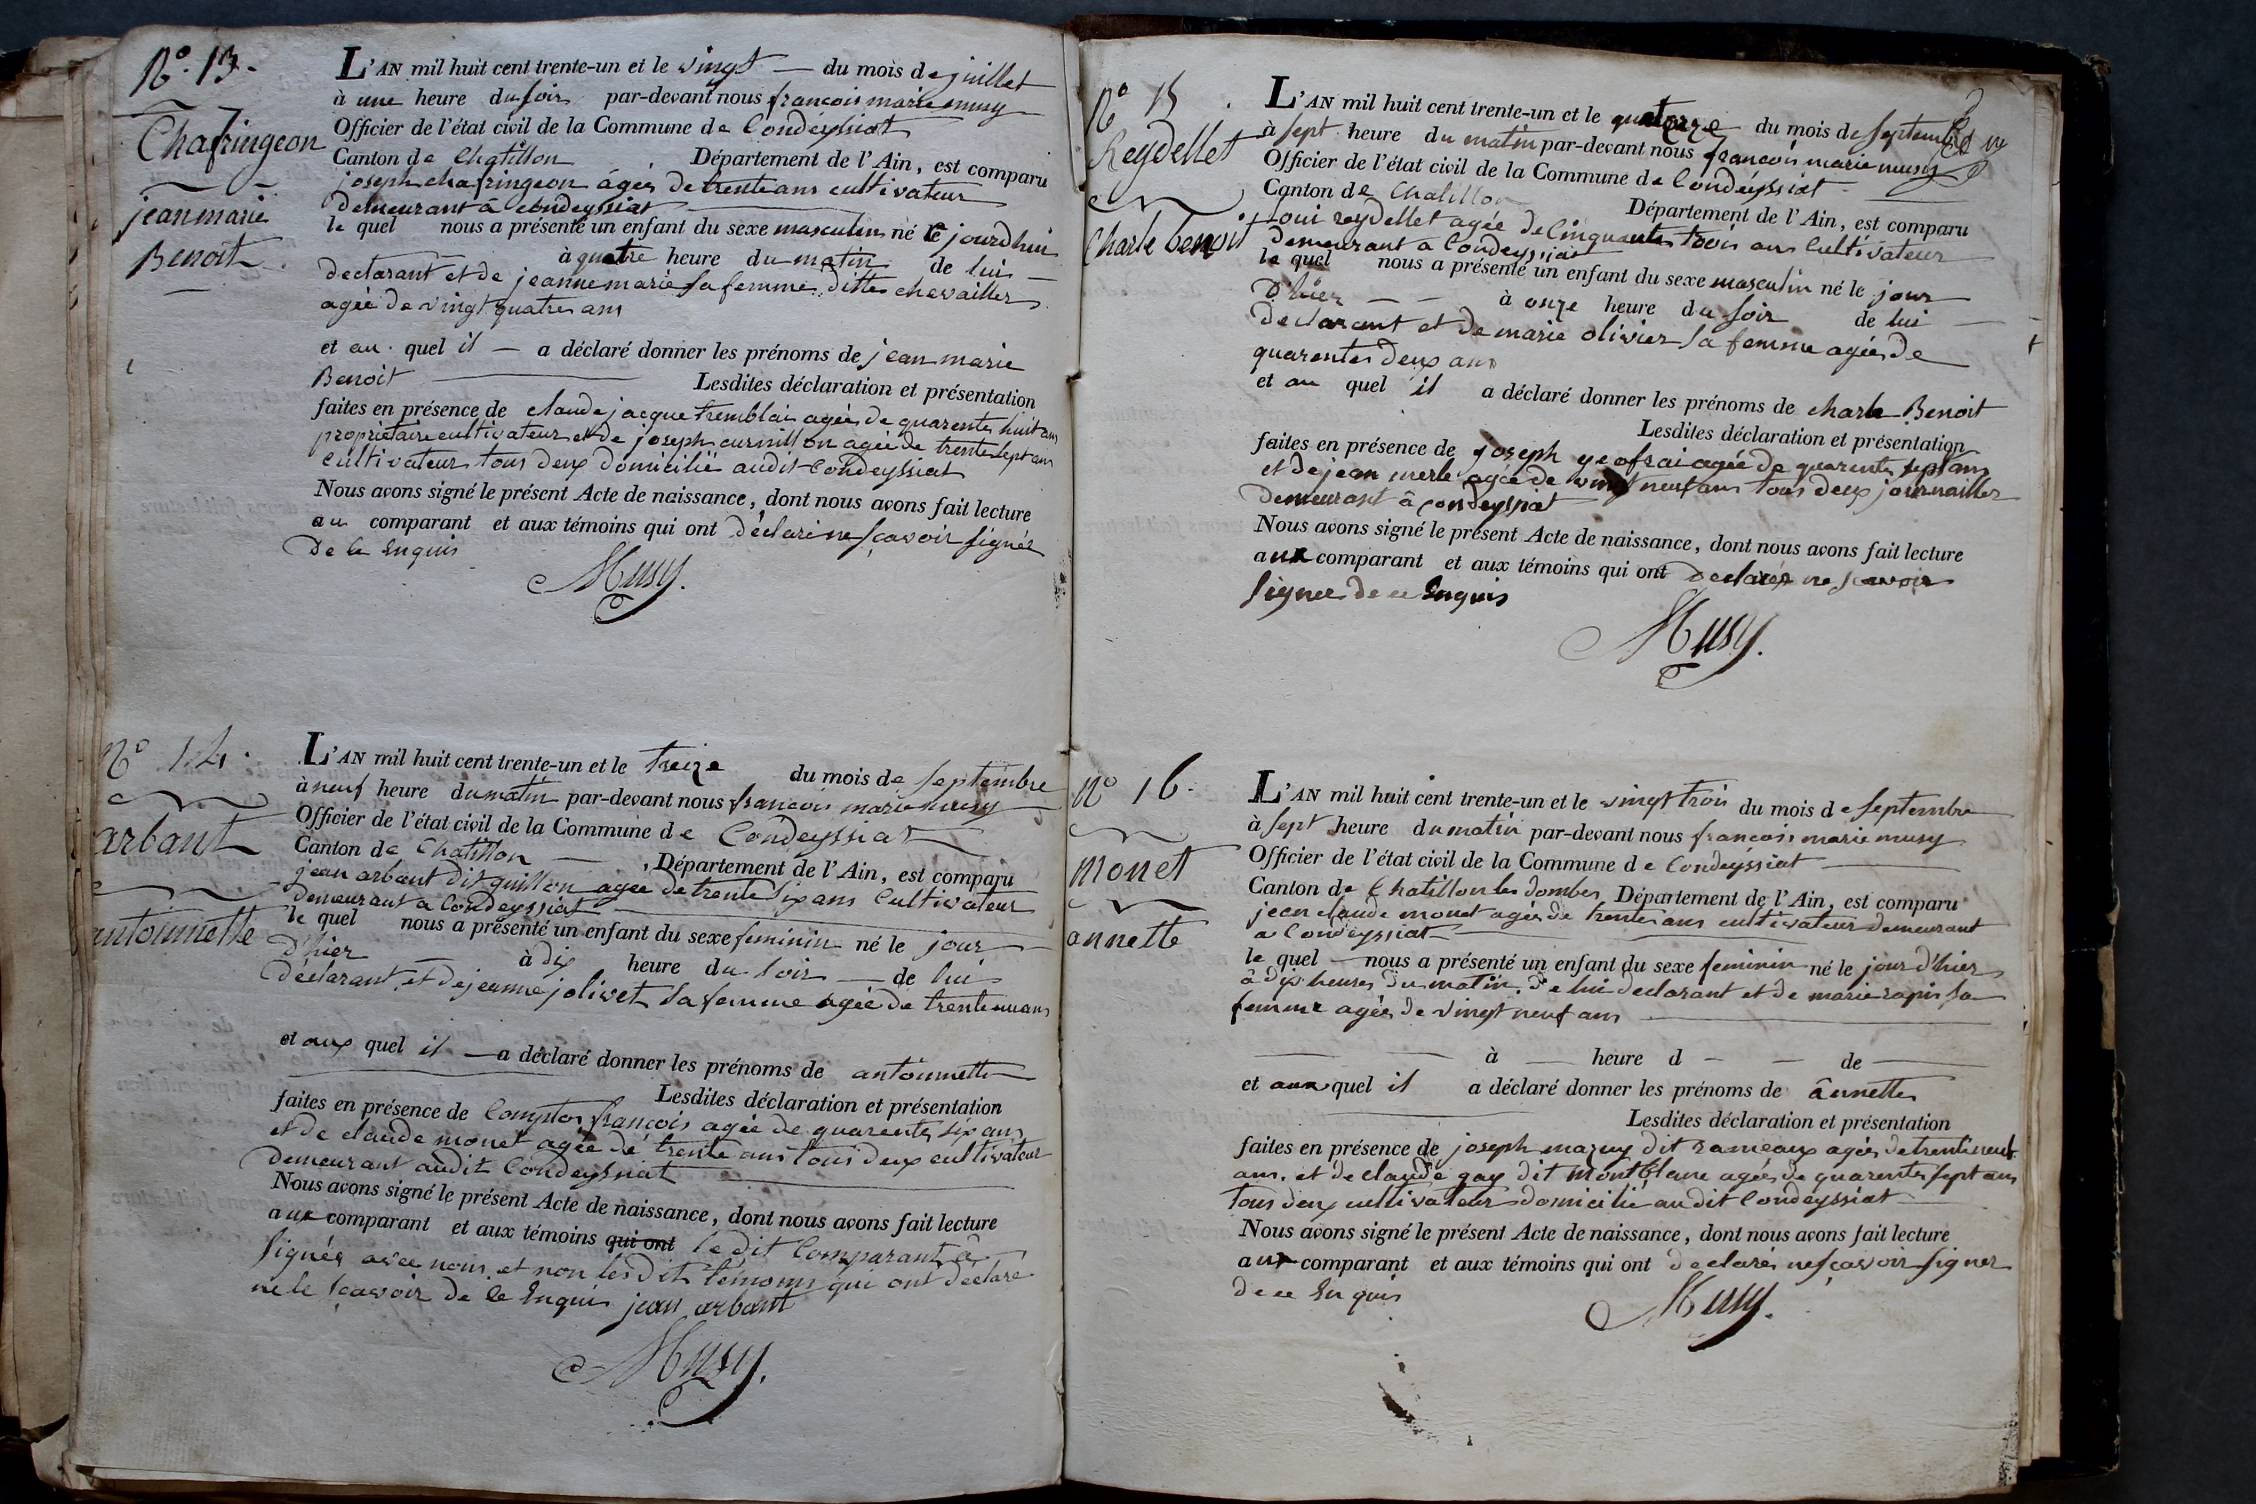 N.º 13.
Chafringeon
jean marie
Benoit
L'AN mil huit cent trente-un et le vingt — du mois de juillet
à une heure du soir par-devant nous francois marie musy
Officier de l'état civil de la Commune de Condéyssiat
Canton de Chatillon , Département de l'Ain, est comparu
joseph chafringeon âgés de trente ans cultivateur
demeurant â condeyssiat
le quel nous a présenté un enfant du sexe masculin né le jourdhui
à quatre heure du matin de lui —
declarant et de jeanne marie sa femme dittes chevailler
agée de vingt quatre ans
et au quel il — a déclaré donner les prénoms de jean marie
Benoit Lesdites déclaration et présentation
faites en présence de claude jacque tremblai agées de quarentes huit ans
propriétaire cultivateur et de joseph curnillon agée de trente sept ans
cultivateur tous deux domicilié audit Condeyssiat
Nous avons signé le présent Acte de naissance, dont nous avons fait lecture
au comparant et aux témoins qui ont déclaré ne sçavoir signés
De ce Enquis
Musy.
N.º 14.
arbant
antoinnette
L'AN mil huit cent trente-un et le treize du mois de septembre
à neuf heure du matin par-devant nous francois marie musy
Officier de l'état civil de la Commune de Condeyssiat
Canton de Chatillon — , Département de l'Ain, est comparu
jean arbant dit guillon agee de trente six ans Cultivateur
demeurant a Condeyssiat
le quel nous a présenté un enfant du sexe feminin né le jour
D'hier à dix heure du soir — de lui
déclarant et de jeanne jolivet sa femme agée de trente un ans
et aux quel il — a déclaré donner les prénoms de antoinnette
Lesdites déclaration et présentation
faites en présence de Compton françois agée de quarentes six ans
et de claude monet agée de trente ans tous deux cultivateur
demeurant audit Condeyssiat
Nous avons signé le présent Acte de naissance, dont nous avons fait lecture
aux comparant et aux témoins qui ont le dit Comparant â
signés avec nous et non les dit témoins qui ont déclaré
ne le sçavoir de ce Enquis jean arbant
Musy.
N.º 15.
Reydellet
charle benoit
L'AN mil huit cent trente-un et le quatorze du mois de septembre
à sept heure du matin par-devant nous francois marie musy
Officier de l'état civil de la Commune de Condéyssiat
Canton de Chatillon Département de l'Ain, est comparu
loui reydellet agée de Cinquante trois ans Cultivateur
demeurant a Condeyssiat
le quel nous a présenté un enfant du sexe masculin né le jour
D'hier — à onze heure du soir de lui —
declarant et de marie olivier sa femme agées de
quarentes deux ans
et au quel il a déclaré donner les prénoms de charle Benoit
Lesdites déclaration et présentation
faites en présence de joseph geofrai agée de quarentes sept ans
et de jean merle agée de vingt neuf ans tous deux journailler
demeurant â condeyssiat
Nous avons signé le présent Acte de naissance, dont nous avons fait lecture
aux comparant et aux témoins qui ont declarés ne scavoir
signer de ce Enquis
Musy.
N.º 16.
monet
annette
L'AN mil huit cent trente-un et le vingt trois du mois de septembre
à sept heure du matin par-devant nous francois marie musy
Officier de l'état civil de la Commune de Condeyssiat
Canton de Chatillon les dombes Département de l'Ain, est comparu
jean claude monet agées de trentes ans cultivateur demeurant
a Condeyssiat
le quel — nous a présenté un enfant du sexe feminin né le jour d'hier
â dix heures du matin de lui declarant et de marie rapis sa
femme agées de vingt neuf ans
à — heure d — de —
et aux quel il a déclaré donner les prénoms de ânnette
Lesdites déclaration et présentation
faites en présence de joseph mazuy dit rameaux agées de trente neuf
ans et de claude gay dit montblanc agées de quarentes sept ans
tous deux cultivateur domicilié audit Condeyssiat
Nous avons signé le présent Acte de naissance, dont nous avons fait lecture
aux comparant et aux témoins qui ont declarés ne sçavoir signer
de ce Enquis
Musy.